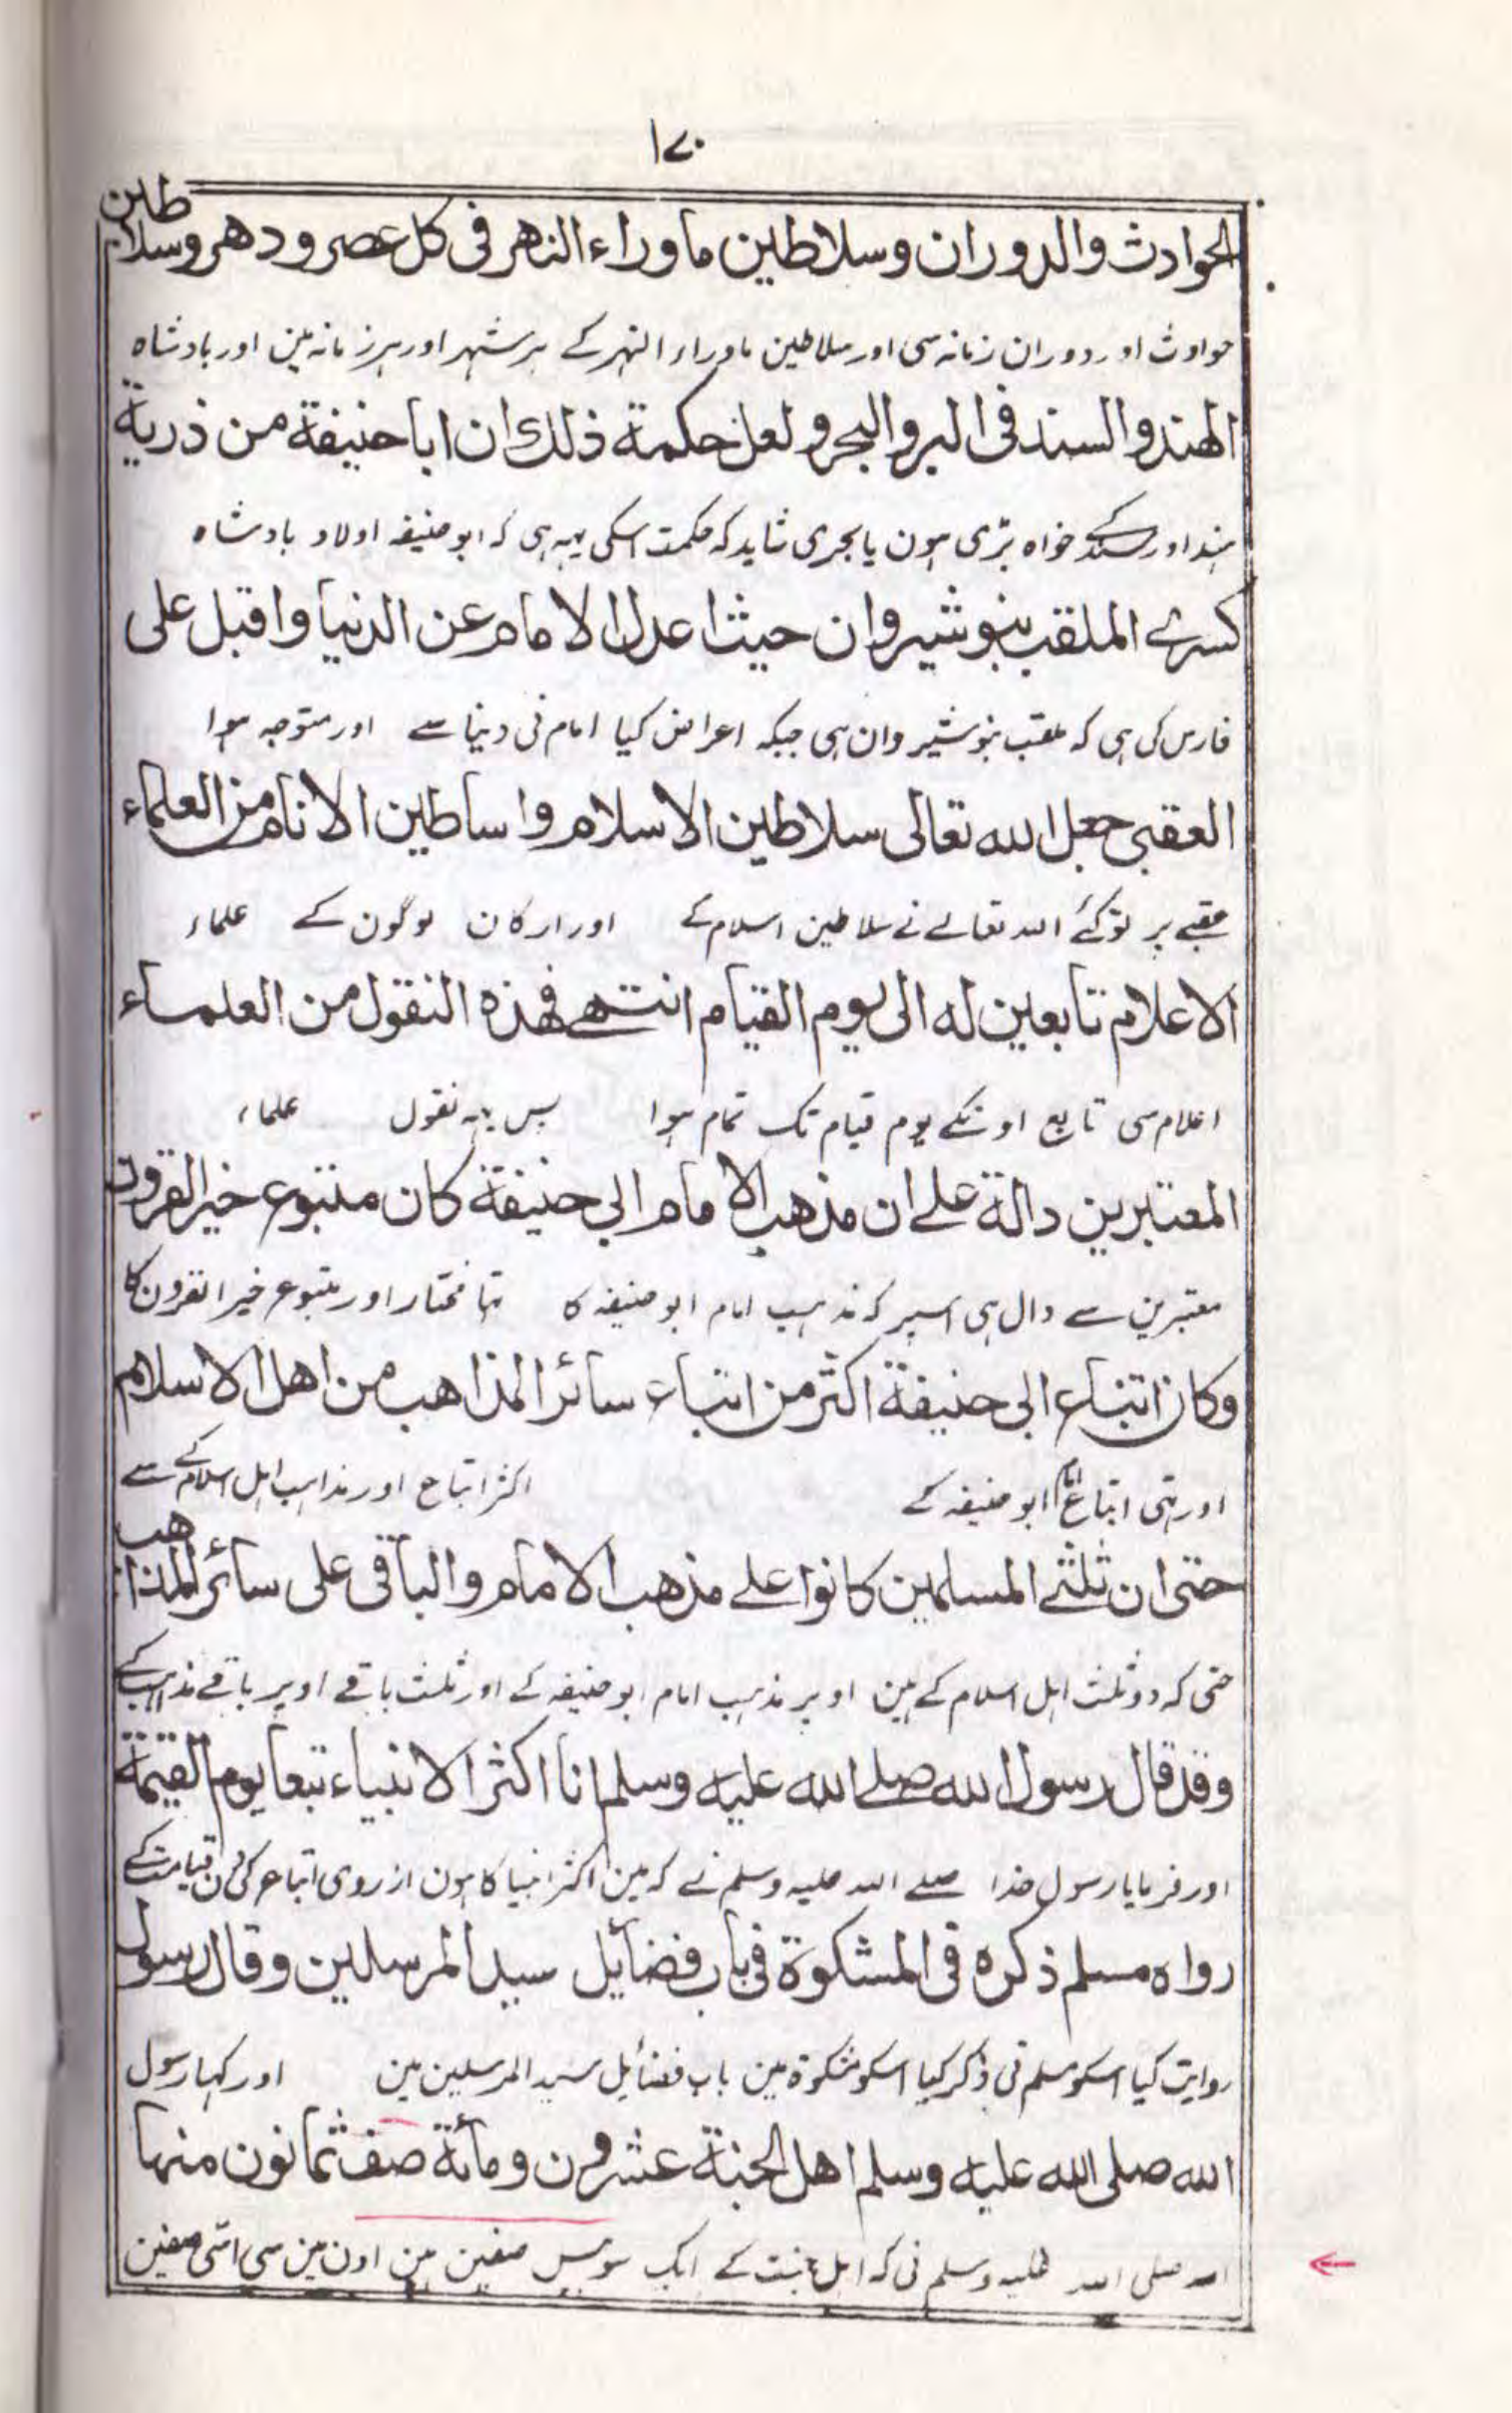 ۱۷۰
الحوادث والدوران وسلاطين ماوراء النهر فى كل عصر ودهر وسلاطين
حوادث اور دوران زمانہ سی اور سلاطین ماوراء النہر کے ہر شہر اور ہر زمانہ مین اور بادشاہ
الهند والسند فى البر والبحر ولعل حكمة ذلك ان اباحنيفة من ذرية
ہند اور سند کے خواہ برّی ہون یا بحری شاید کہ حکمت اسکی یہہ ہی کہ ابو حنیفہ اولاد بادشاہ
كسرے الملقب بنوشيروان حيث اعدل الامام عن الدنيا واقبل على
فارس کی ہی کہ ملقب بنوشیروان ہی جبکہ اعراض کیا امام نی دنیا سے اور متوجہ ہوا
العقبى جعل الله تعالى سلاطين الاسلام واساطين الانام من العلماء
عقبے پر تو کئے اللہ تعالے نے سلاطین اسلام کے اور ارکان لوگون کے علماء
الاعلام تابعين له الى يوم القيام انتهے فهذه النقول من العلماء
اعلام سی تابع اونکے یوم قیام تک تمام ہوا پس یہہ نقول علماء
المعتبرين دالة علے ان مذهب الامام ابى حنيفة كان متبوع خير القرون
معتبرین سے دال ہی اسپر کہ مذہب امام ابو حنیفہ کا تہا مختار اور متبوع خیر القرون کا
وكان اتباع ابى حنيفة اكثر من اتباع سائر المذاهب من اهل الاسلام
اور تہی اتباع امام ابو حنیفہ کے اکثر اتباع اور مذاہب اہل اسلام کے سے
حتى ان ثلثے المسلمين كانوا علے مذهب الامام والباقى على سائر المذاهب
حتی کہ دو ثلث اہل اسلام کے ہین اوپر مذہب امام ابو حنیفہ کے اور ثلث باقے اوپر باقے مذاہب کے
وقد قال رسول الله صلے الله عليه وسلم انا اكثر الانبياء تبعا يوم القيمة
اور فرمایا رسول خدا صلے اللہ علیہ وسلم نے کہ مین اکثر انبیا کا ہون از روی اتباع کی دن قیامت کے
رواه مسلم ذكره فى المشكوة فى باب فضائل سيد المرسلين وقال رسول
روایت کیا اسکو مسلم نی ذکر کیا اسکو مشکوۃ مین باب فضائل سید المرسلین مین اور کہا رسول
الله صلى الله عليه وسلم اهل الجنة عشرون ومائة صف ثمانون منها
اللہ صلی اللہ علیہ وسلم نی کہ اہل جنت کے ایک سو بیس صفین ہین اون مین سی اسّی صفین